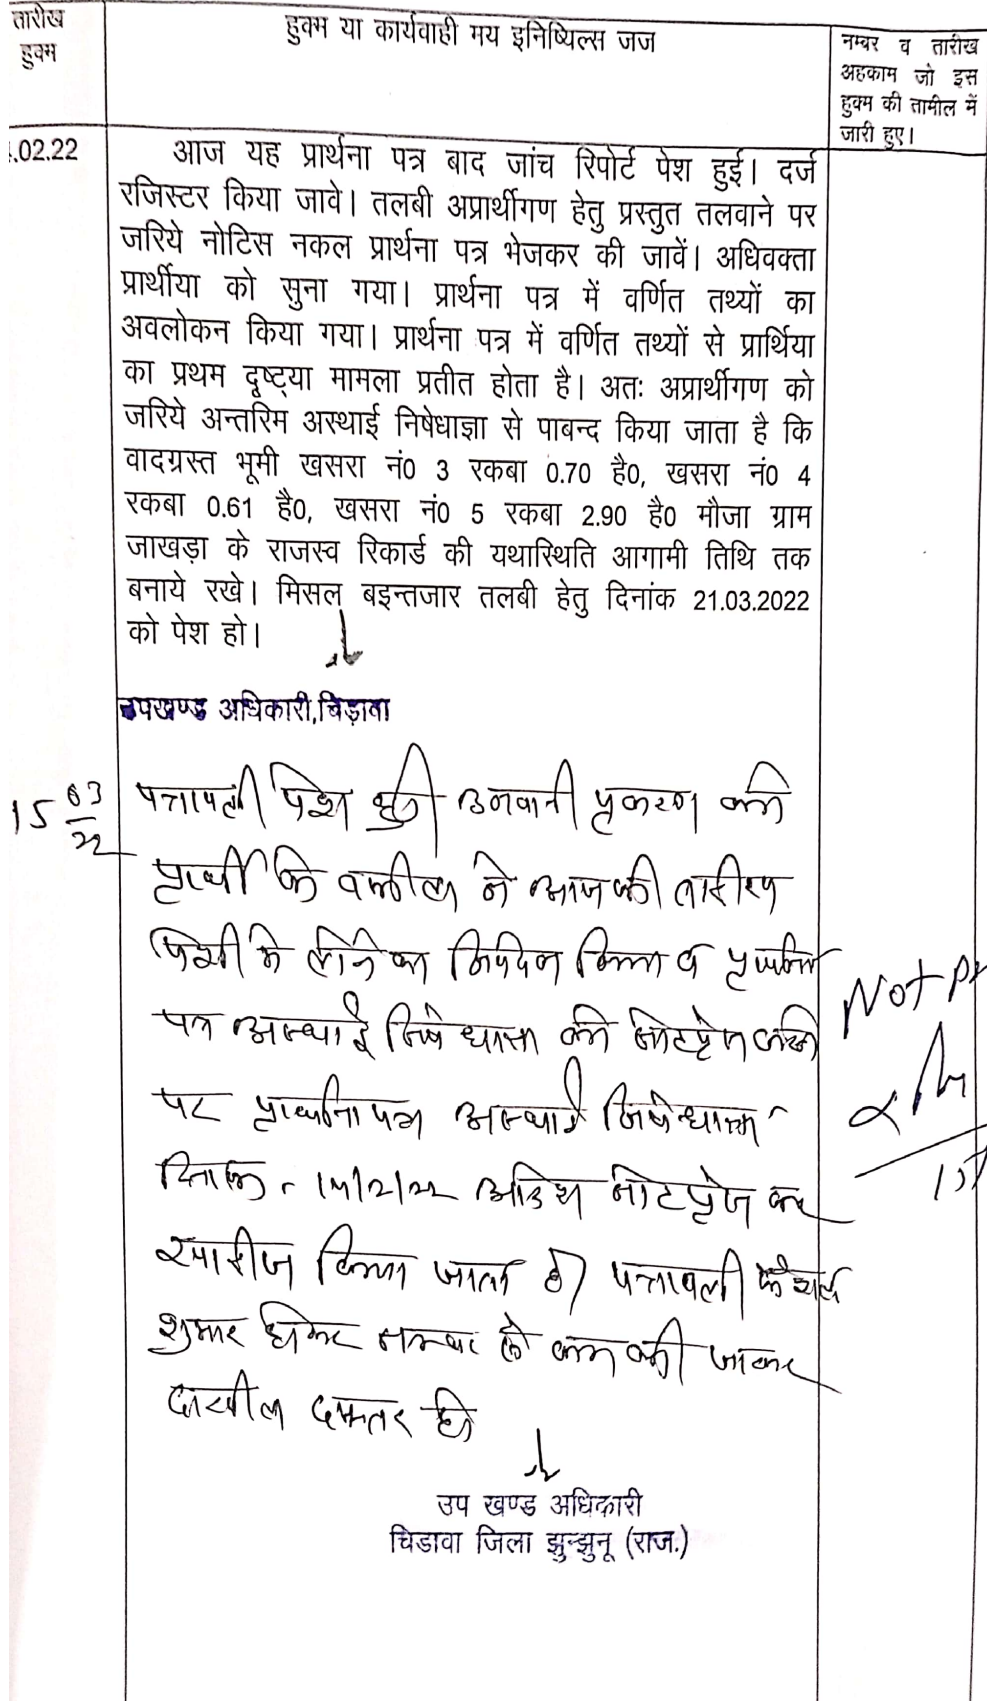 तारीख
हुक्म
हुक्म या कार्यवाही मय इनिष्यिल्स जज
नम्बर व तारीख
अहकाम जो इस
हुक्म की तामील में
जारी हुए।
.02.22
आज यह प्रार्थना पत्र बाद जांच रिपोर्ट पेश हुई। दर्ज
रजिस्टर किया जावे। तलबी अप्रार्थीगण हेतु प्रस्तुत तलवाने पर
जरिये नोटिस नकल प्रार्थना पत्र भेजकर की जावें। अधिवक्ता
प्रार्थीया को सुना गया। प्रार्थना पत्र में वर्णित तथ्यों का
अवलोकन किया गया। प्रार्थना पत्र में वर्णित तथ्यों से प्रार्थिया
का प्रथम दृष्ट्या मामला प्रतीत होता है। अतः अप्रार्थीगण को
जरिये अन्तरिम अस्थाई निषेधाज्ञा से पाबन्द किया जाता है कि
वादग्रस्त भूमी खसरा नं0 3 रकबा 0.70 है0, खसरा नं0 4
रकबा 0.61 है0, खसरा नं0 5 रकबा 2.90 है0 मौजा ग्राम
जाखड़ा के राजस्व रिकार्ड की यथास्थिति आगामी तिथि तक
बनाये रखे। मिसल बइन्तजार तलबी हेतु दिनांक 21.03.2022
को पेश हो।
उपखण्ड अधिकारी,चिड़ावा
15 03/22
पत्रावली पेश हुई उनवानी प्रकरण की
प्रार्थी के वकील ने आज की तारीख
पेशी में लेने का निवेदन किया व प्रार्थना
पत्र अस्थाई निषेधाज्ञा को नोटप्रेस करने
पर प्रार्थना पत्र अस्थाई निषेधाज्ञा
दिनांक नोटप्रेस कर
खारीज किया जाता है। पत्रावली फैसल
शुमार होकर नम्बर से कम की जाकर
दाखील दफ्तर हो
Not
उप खण्ड अधिकारी
चिडावा जिला झुन्झुनू (राज.)